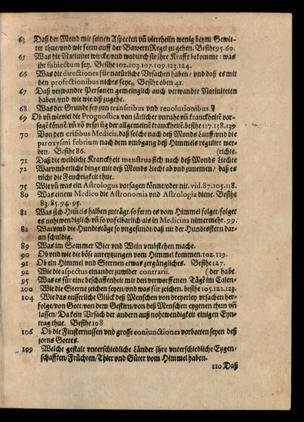 63 Daß der Mond mit seinen Aspecten vñ vierthelln wenig beym Gewit-
ter thue, vnd wie fern auff der Bawern Regel zu gehen. Besihe 95. 60.
65 Was die Natiuitet wircke, vnd wodurch sie ihre Krafft bekomme: was
ihr subiectum sey. Besihe 102.103.107.109.123.124.
66 Was die directiones für natürliche Vrsachen haben: vnd daß es mit
den profectionibus nichts sey. Besihe oben 41.
67 Daß verwandte Personen gemeinglich auch verwandte Natiuiteten
haben, vnd wie diß zugehe.
68 Was der Grunde sey zun transitibus vnd reuolutionibus?
69 Ob vñ wieviel die Prognostica von järlicher vnruhe vñ kranckheit vor-
sagẽ können: vñ vō vrsprũg der allgemeinẽ kranckheitẽ. besihe 117.138.139
70 Von den crisibus Medicis, daß solche nach deß Monds Lauff vnd der
paroxysmi febrium nach dem vmbgang deß Himmels regulirt wer-
den. Besihe 86. (richte.
71 Daß die weibliche Kranckheit menstruа sich nach deß Monds Liechte
72 Warumb etliche dinge mit deß Monds Liecht ab vnd zunemen: daß es
nicht die Feuchtigkeit thue.
75 Wie vñ was ein Astrologus vorsagen könne oder nit. vid. 87.105.118.
80 Was einem Medico die Astronomia vnd Astrologia diene. Besihe
83. 85. 94. 95.
81 Was sich
82 Warumb die Hundstage so vngesund: daß nit der Hundsstern dar-
an schuldig.
89 Was im Sommer Bier vnd Wein vmbstehen mache.
90 Ob vnd wie die böse anregungen vom Himmel kommen. 102.119.
91 Ob ein Himmel vnd Sternen etwas zergängliches. Besihe 127.
92 Wie die aspectus einander zuwider contrarii. (der habe.
95 Was es für eine beschaffenheit mit den verworffenen Tägẽ im Calen-
100 Wie die Sterne zeichen seyen, vnd was für zeichen. besihe 105.122.123.
104 Wie das eusserliche Glück deß Menschen von dreyerley vrsachen her-
folge, von Gott, von dem Gestirn, von deß Menschen eygenen thun vñ
lassen: Da kein Vrsach der andern auß nohtwendigkeit einigen Eyn-
trag thue. Besihe 108
106 Ob die Finsternussen vnd grosse coniunctiones vorbotten seyen deß
zorns Gottes.
109 Welche gestalt vnterschiedliche Länder ihre vnterschiedliche Eygen-
schafften, Früchten, Thier vnd Güter vom Himmel haben.
110 Daß